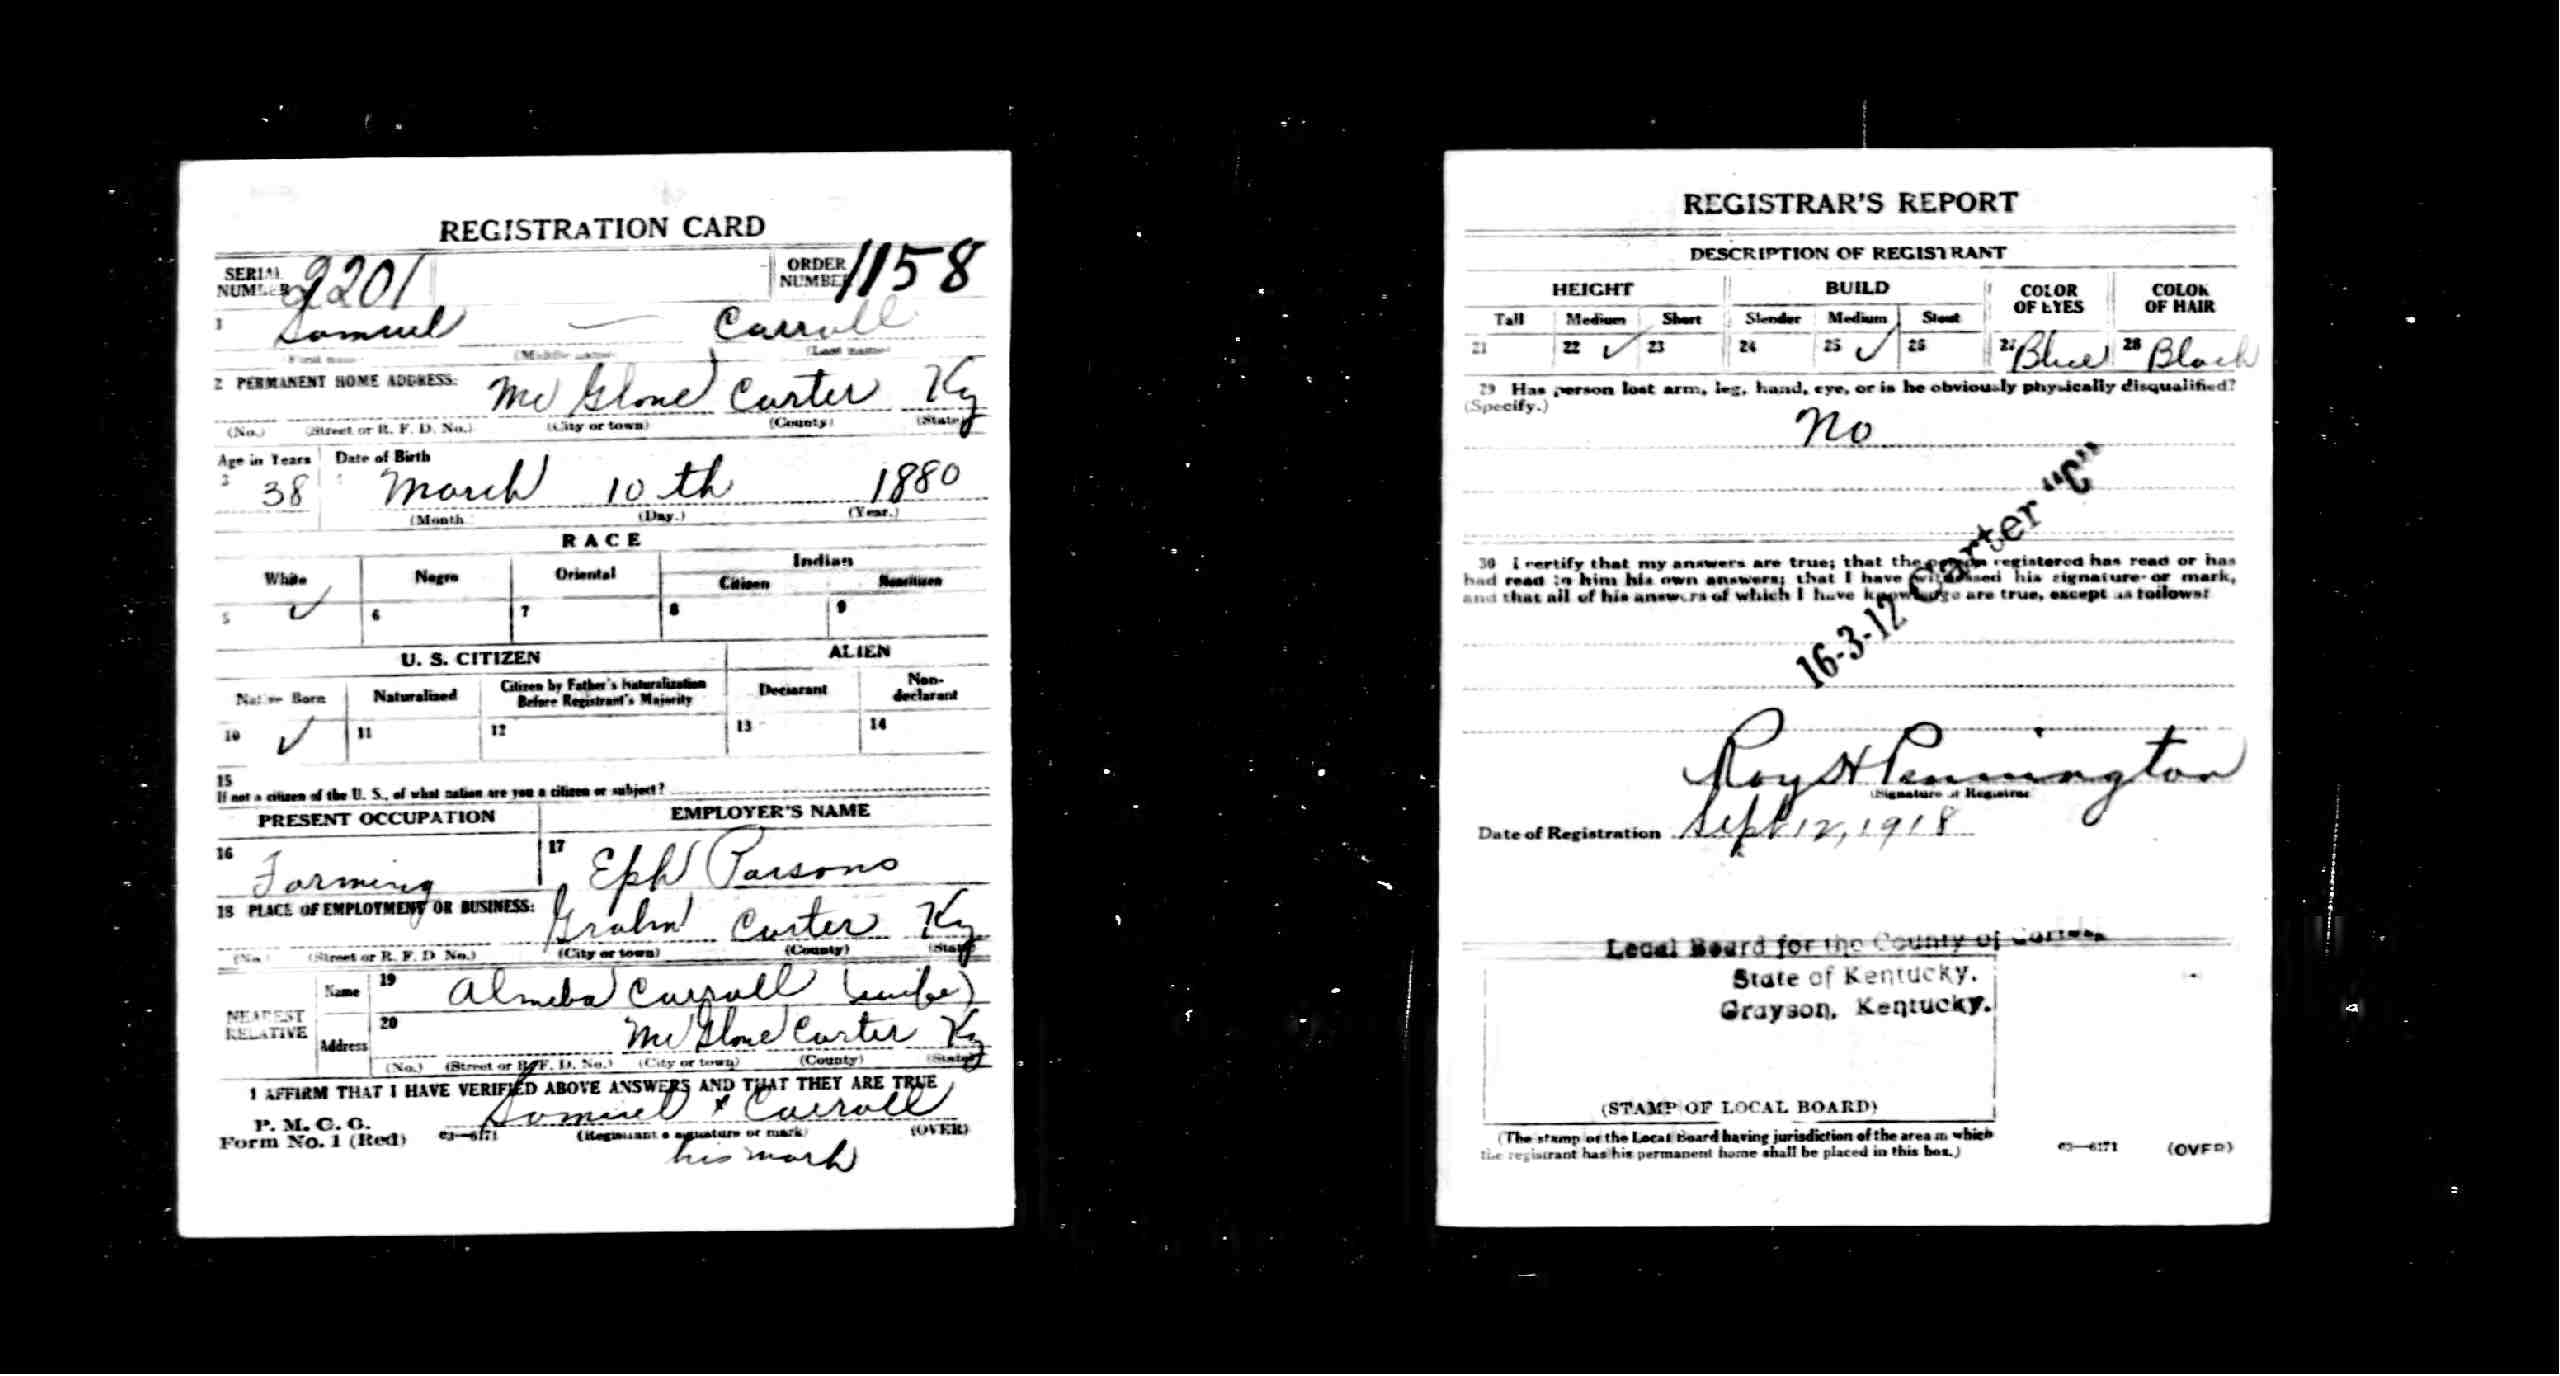 REGISTRATION CARD
SERIAL NUMBER 2201 ORDER NUMBER 1158
1 Samuel — Carroll
(First name) (Middle name) (Last name)
2 PERMANENT HOME ADDRESS:
Mc Glone Carter Ky
(No.) (Street or R. F. D. No.) (City or town) (County) (State)
Age in Years Date of Birth
3 38 March 10th 1880
(Month (Day.) (Year.)
RACE
White Negro Oriental Indian
Citizen Noncitizen
5 ✓ 6 7 8 9
U. S. CITIZEN ALIEN
Native Born Naturalized Citizen by Father's Naturalization Before Registrant's Majority Declarant Non-declarant
10 ✓ 11 12 13 14
15
If not a citizen of the U. S., of what nation are you a citizen or subject?
PRESENT OCCUPATION EMPLOYER'S NAME
16 Farming 17 Eph Parsons
18 PLACE OF EMPLOYMENT OR BUSINESS:
Grahn Carter Ky
(No.) (Street or R. F. D. No.) (City or town) (County) (State)
NEAREST RELATIVE
Name 19 Almeba Carroll (wife)
Address 20 Mc Glone Carter Ky
(No.) (Street or R. F. D. No.) (City or town) (County) (State)
I AFFIRM THAT I HAVE VERIFIED ABOVE ANSWERS AND THAT THEY ARE TRUE
P. M. G. O.
Form No. 1 (Red) 03—6171 Samuel x Carroll
(Registrant's signature or mark) (OVER)
his mark
REGISTRAR'S REPORT
DESCRIPTION OF REGISTRANT
HEIGHT BUILD COLOR OF EYES COLOR OF HAIR
Tall Medium Short Slender Medium Stout
21 22 ✓ 23 24 25 ✓ 26 27 Blue 28 Black
29 Has person lost arm, leg, hand, eye, or is he obviously physically disqualified?
(Specify.)
No
30 I certify that my answers are true; that the person registered has read or has
had read to him his own answers; that I have witnessed his signature or mark,
and that all of his answers of which I have knowledge are true, except as follows:
16-3-12 Carter "C"
Roy H Pennington
(Signature of Registrar
Date of Registration Sept 12, 1918
Local Board for the County of Carter,
State of Kentucky.
Grayson, Kentucky.
(STAMP OF LOCAL BOARD)
(The stamp of the Local Board having jurisdiction of the area in which
the registrant has his permanent home shall be placed in this box.)
03—6171 (OVER)